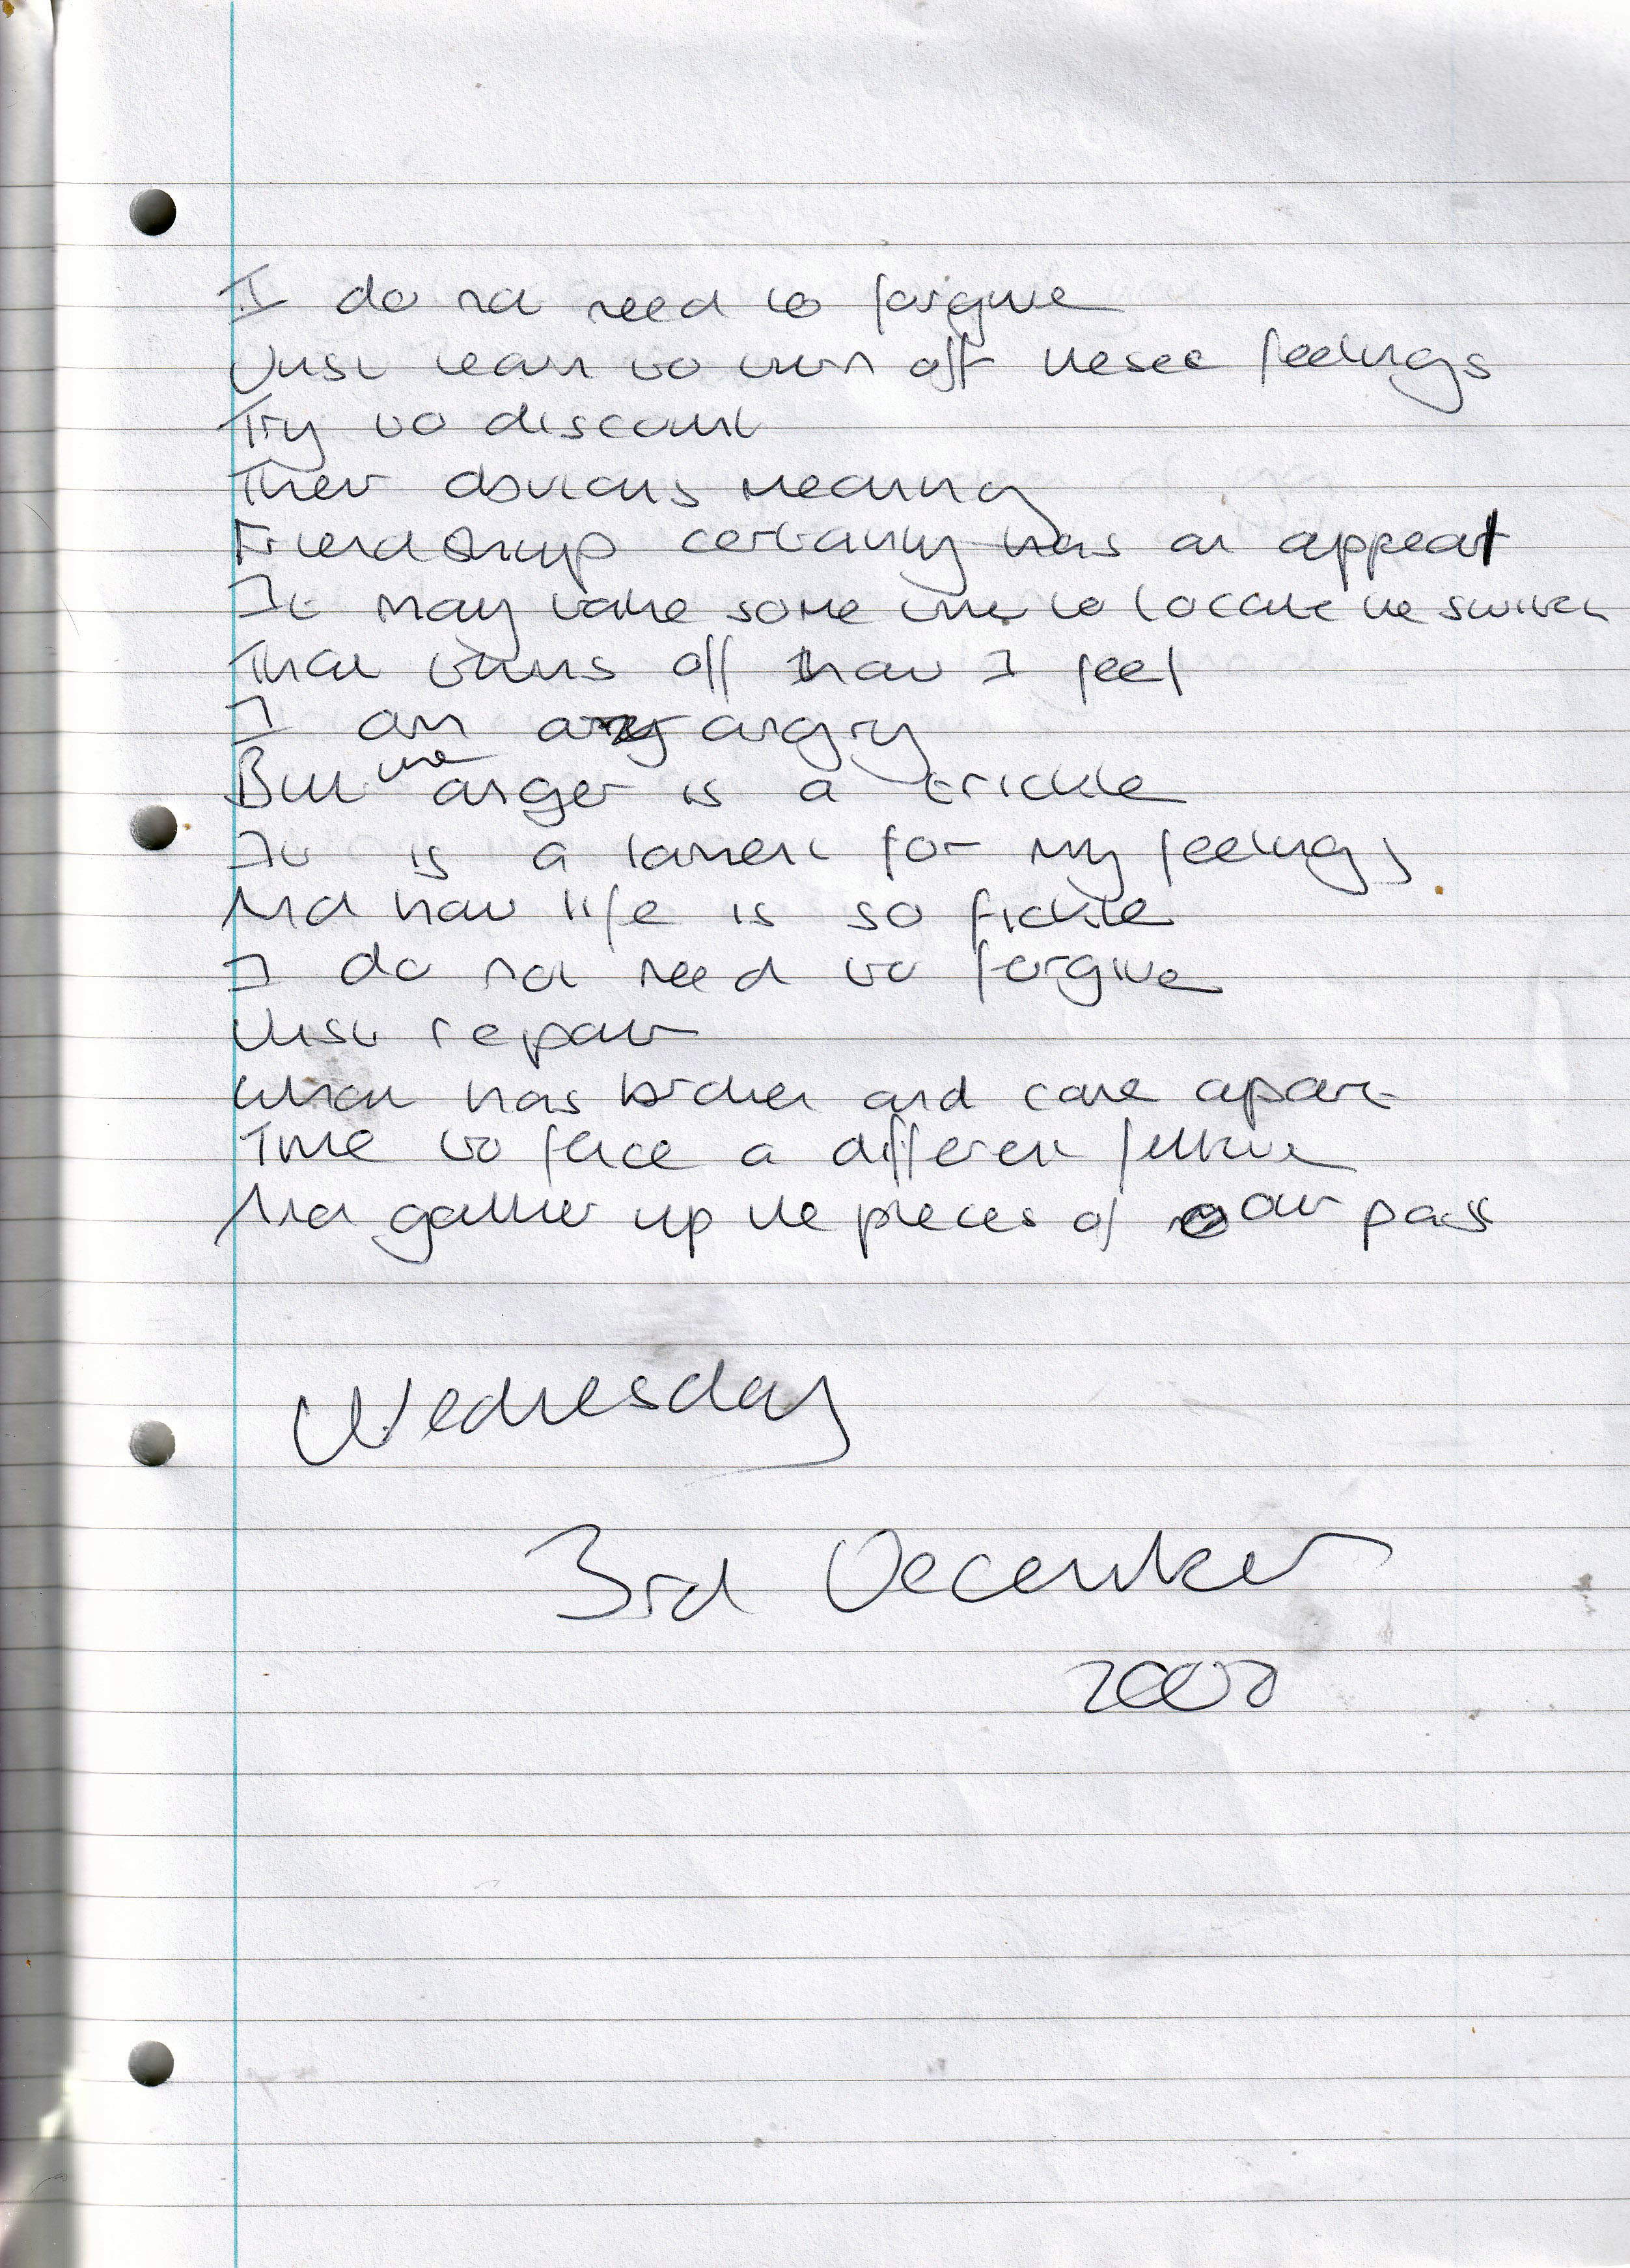 I do not need to forgive
Just learn to turn off these feelings
Try to discount
Their obvious meaning
Friendship certainly has an appeal
It may take some time to locate the switch
That turns off how I feel
I am angry
But the anger is a trickle
It is a lament for my feelings
And how life is so fickle
I do not need to forgive
Just repair
What has broken and came apart
Time to face a different future
And gather up the pieces of our past
Wednesday
3rd December
2008